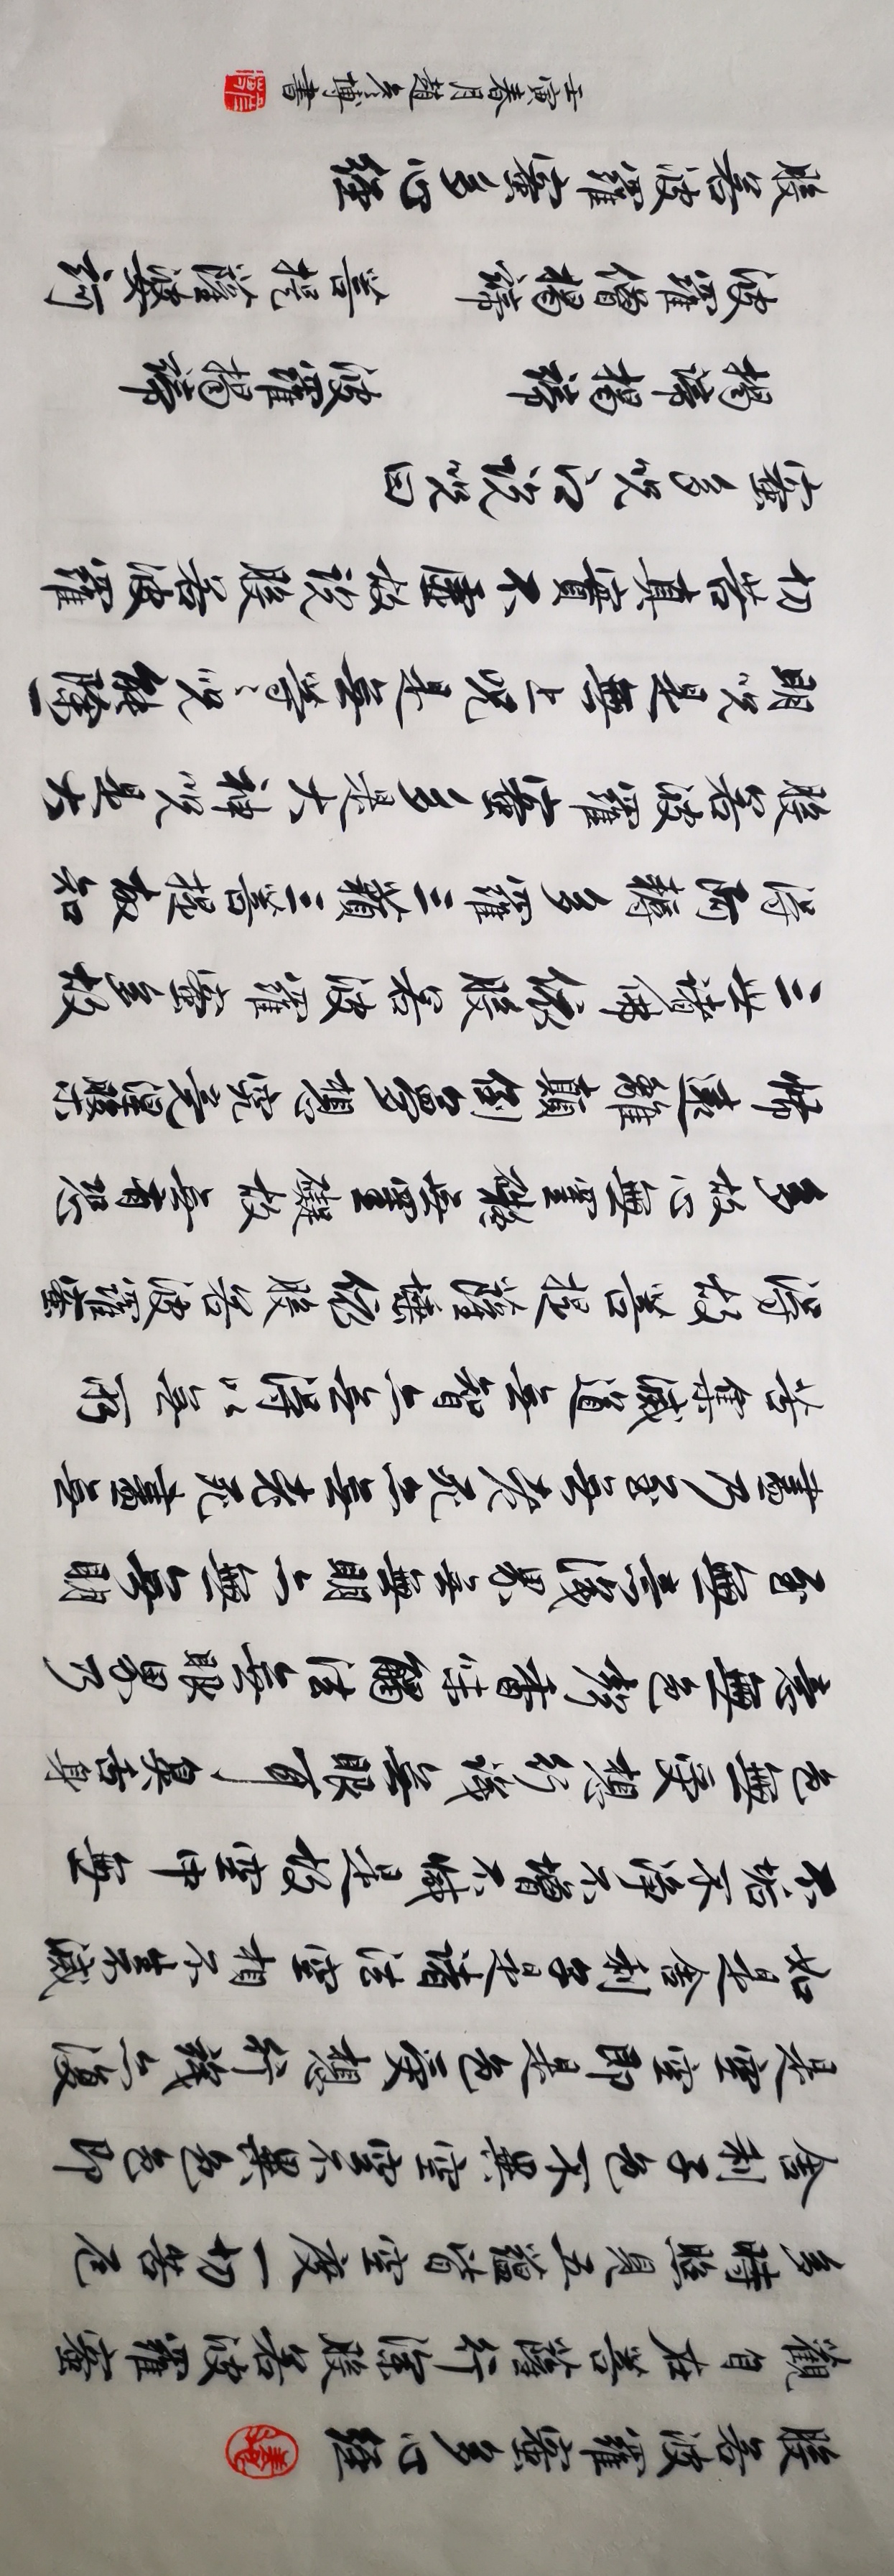 般若波羅蜜多心經
觀自在菩薩行深般若波羅蜜
多時照見五蘊皆空度一切苦厄
舍利子色不異空空不異色色即
是空空即是色受想行識亦復
如是舍利子是諸法空相不生不滅
不垢不淨不增不減是故空中無
色無受想行識無眼耳鼻舌身
意無色聲香味觸法無眼界乃
至無意識界無無明亦無無明
盡乃至無老死亦無老死盡無
苦集滅道無智亦無得以無所
得故菩提薩埵依般若波羅蜜
多故心無罣礙無罣礙故無有恐
怖遠離顛倒夢想究竟涅槃
三世諸佛依般若波羅蜜多故
得阿耨多羅三藐三菩提故知
般若波羅蜜多是大神咒是大
明咒是無上咒是無等等咒能除一
切苦真實不虛故說般若波羅
蜜多咒即說咒曰
揭諦揭諦 波羅揭諦
波羅僧揭諦 菩提薩婆訶
般若波羅蜜多心經
壬寅春月趙文博書